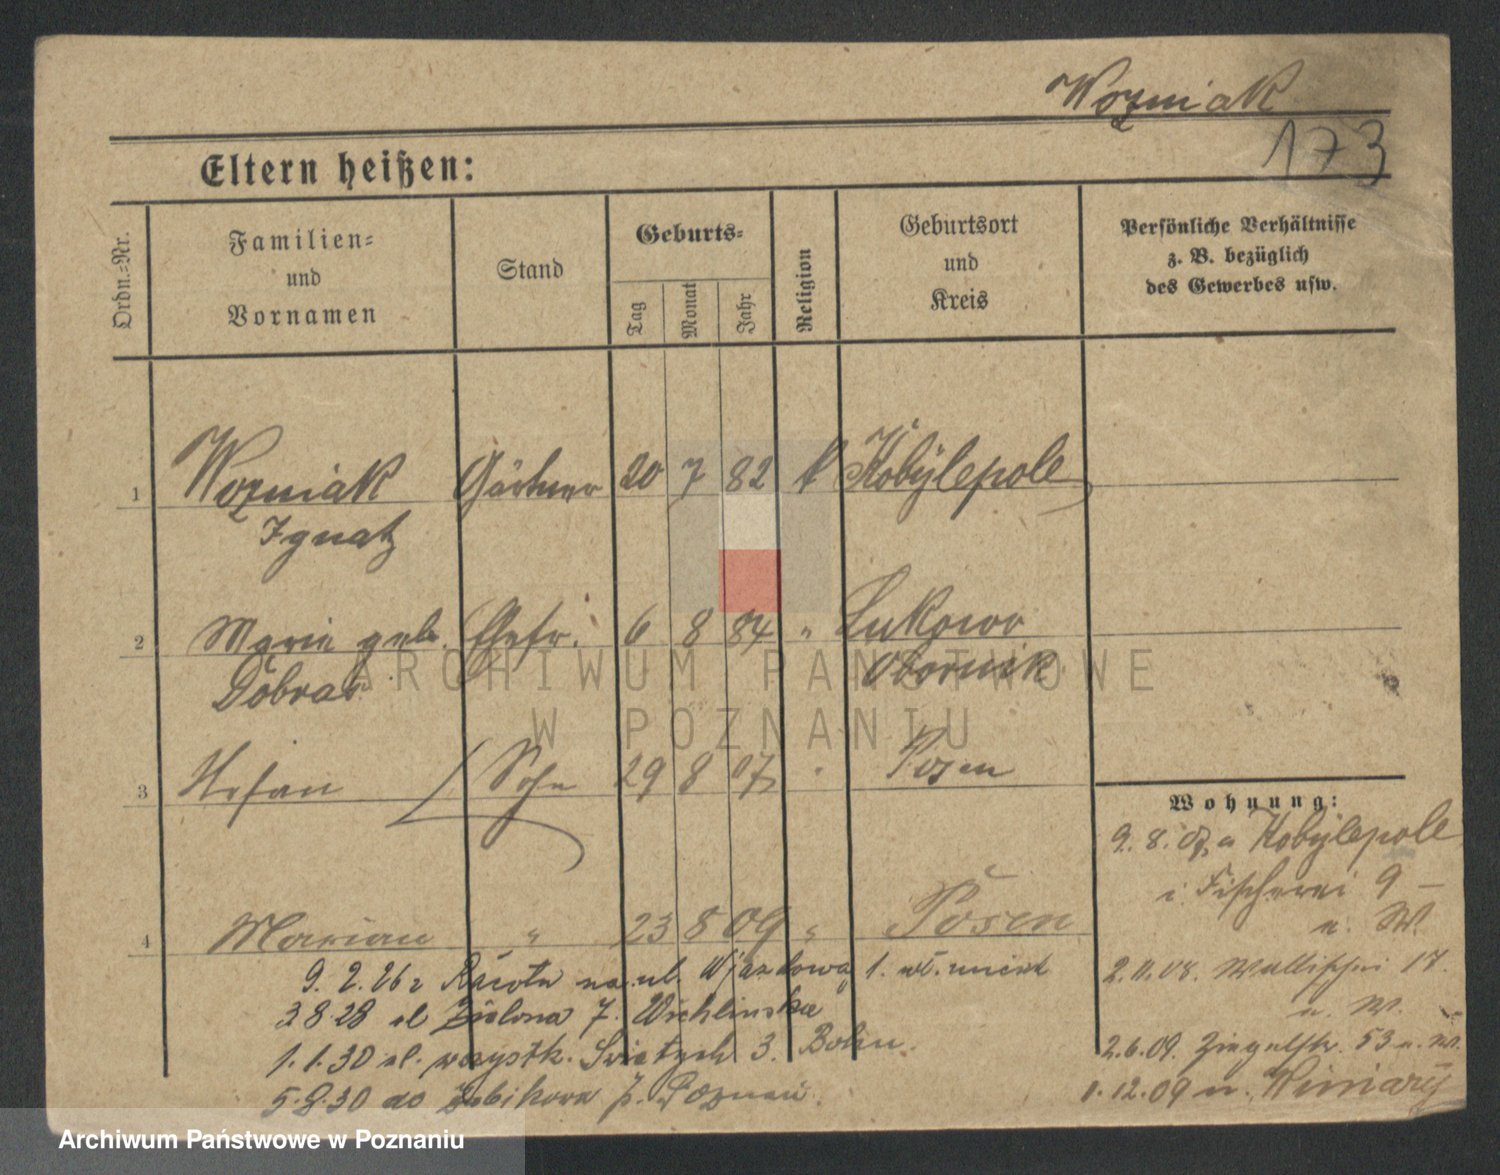 Wozniak
173
Eltern heißen:
Ordn.-Nr.
Familien-
und
Vornamen
Stand
Geburts-
Tag
Monat
Jahr
Religion
Geburtsort
und
Kreis
Persönliche Verhältnisse
z. B. bezüglich
des Gewerbes usw.
1 Wozniak Gärtner 20 7 82 k Kobylepole
Ignatz
2 Marie geb. Ehefr. 6 8 84 " Lukowo
Obornik
3 Stefan Sohn 29 8 07 " Posen
Wohnung:
9. 8. 07 a Kobylepole
i Fischerei 9 –
n. W.
4 Marian " 23 8 09 " Posen
2.11.08. Wallischei 17.
n. W.
2.6.09. Ziegelstr. 53 n. W.
1.12.09 n. Winiary
9. 2. 26 z Racotu na ul. Wjazdową 1.
3.8.28 ul Zielona 7. Wichlinska
1.1.30 ul. wszystk. Świętych 3. Bohn.
5.8.30 do Żabikowa p. Poznań.
ARCHIWUM PAŃSTWOWE
W POZNANIU
Archiwum Państwowe w Poznaniu